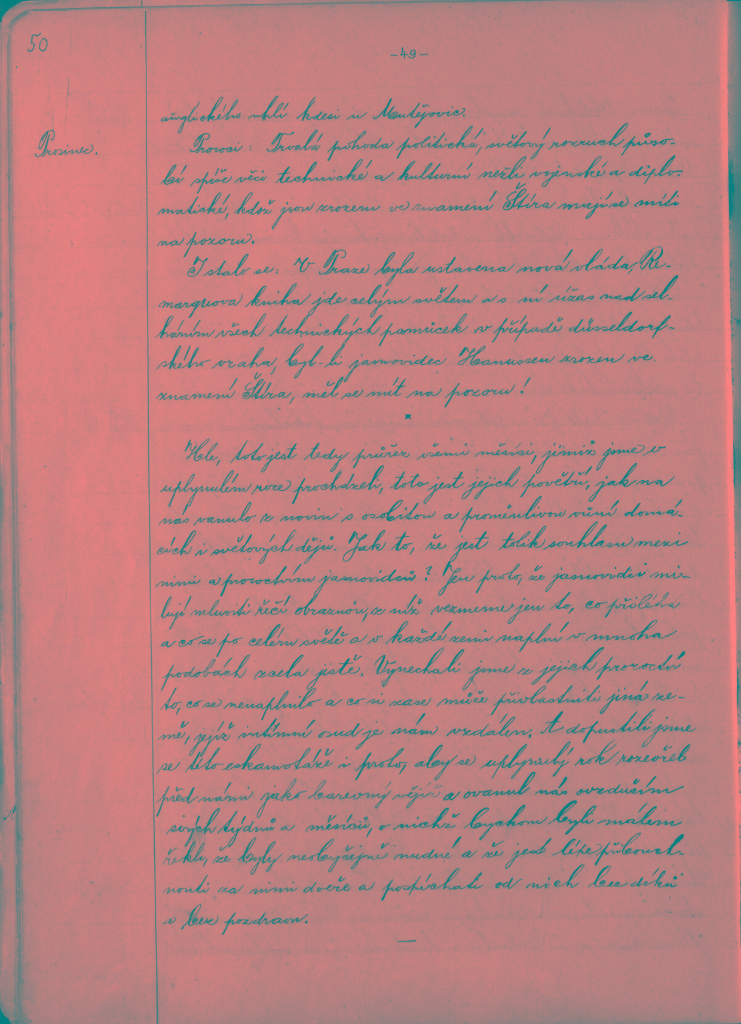 50
-49-
anglického uhlí kdesi u Mutějovic.
Prosinec.
Proroci: Trvalá pohoda politická, světový rozruch působí
bí spíše věci technické a kulturní nežli vojenské a diplo-
matické, kdož jsou zrozeni ve znamení Štíra mají se míti
na pozoru.
I stalo se: V Praze byla ustavena nová vláda, Re-
marqueova kniha jde celým světem a s ní úžas nad sel-
háním všech technických pomůcek v případě düsseldorf-
ského vraha, byl-li jasnovidec Hanussen zrozen ve
znamení Štíra, měl se mít na pozoru!
*
Hle, toto jest tedy průřez všemi měsíci, jimiž jsme v
uplynulém roce procházeli, toto jest jejich povětří, jak na
nás vanulo z novin s osobitou a proměnlivou vůní domá-
cích i světových dějů. Jak to, že jest tolik souhlasu mezi
nimi a proroctvím jasnovidců? Jen proto, že jasnovidci mi-
lují mluviti řečí obraznou, z níž vezmeme jen to, co přiléhá
a co se po celém světě a v každé zemi naplní v mnoha
podobách zcela jistě. Vynechali jsme z jejich proroctví
to, co se nenaplnilo a co si zase může přivlastniti jiná ze-
mě, jejíž intimní osud je nám vzdálen. A dopustili jsme
se této eskamotáže i proto, aby se uplynulý rok rozevřel
před námi jako barevný vějíř a ovanul nás ovzduším
svých týdnů a měsíců, o nichž bychom byli málem
řekli, že byly neobyčejně nudné a že jest lépe přibouch-
nouti za nimi dveře a pospíchati od nich bez díků
a bez pozdravu.